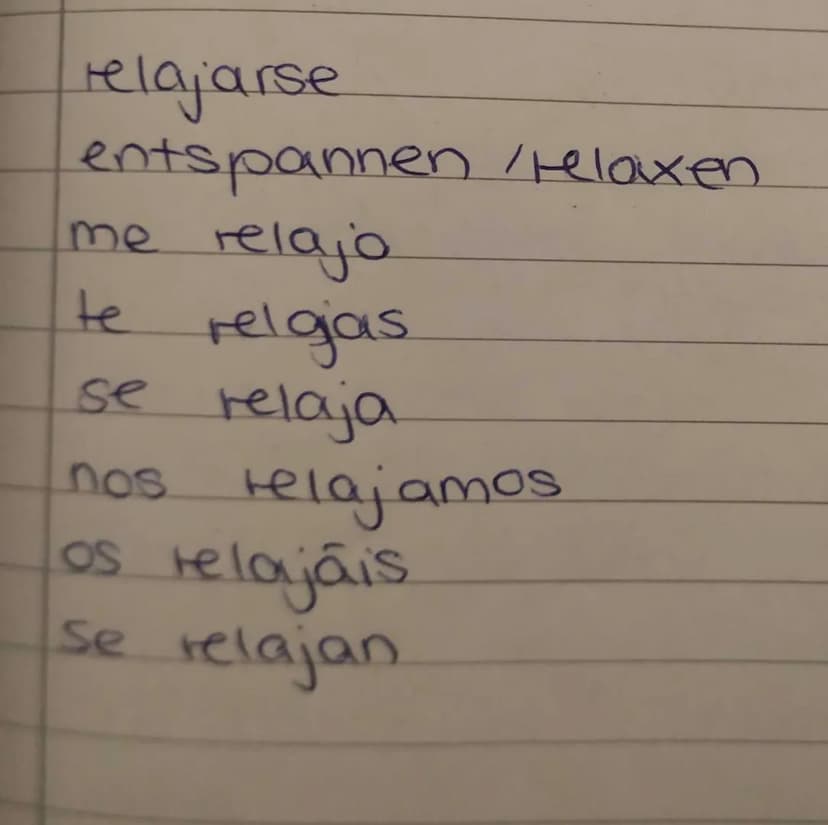 relajarse
entspannen / relaxen
me relajo
te relajas
se relaja
nos relajamos
os relajáis
se relajan